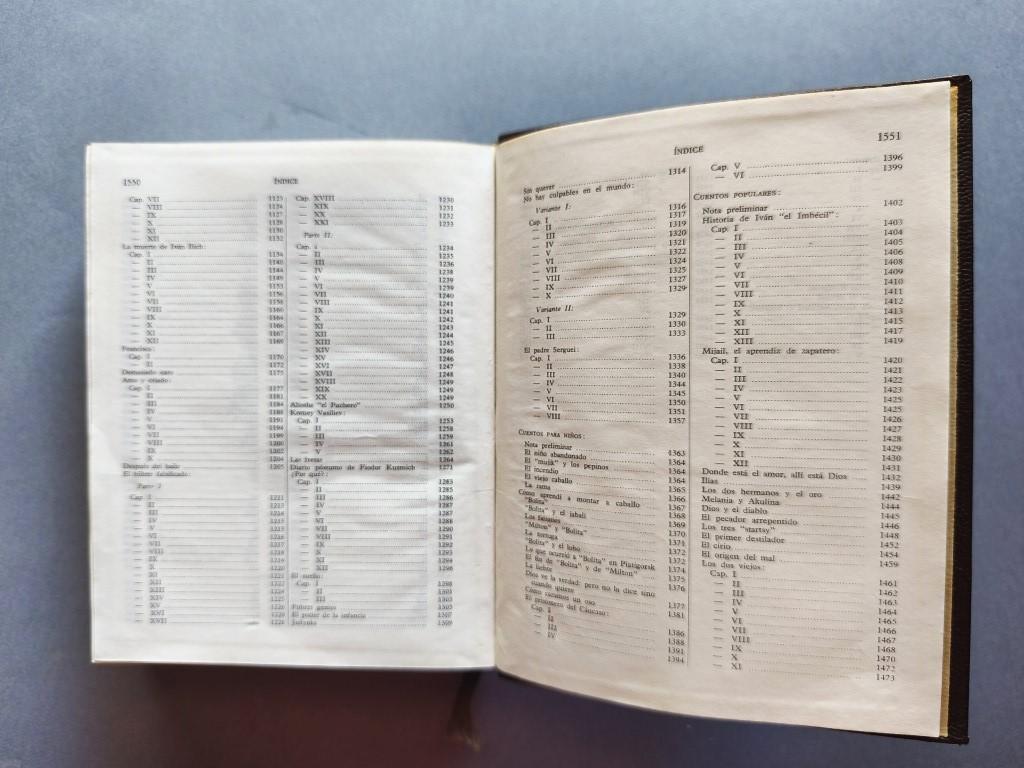 1550
ÍNDICE
Cap. VII
— VIII
— IX
— X
— XI 1130
— XII 1132
La muerte de Iván Ilich:
Cap. I
— II
— III
— IV
— V
— VI
— VII
— VIII
— IX
— X
— XI
— XII
Francisco:
Cap. I 1170
— II 1172
Demasiado caro
Amo y criado:
Cap. I 1177
— II 1181
— III 1184
— IV
— V
— VI
— VII
— VIII
— IX
— X
Después del baile
El billete falsificado:
Parte I
Cap. I
— II
— III
— IV
— V
— VI
— VII
— VIII
— IX
— X
— XI
— XII
— XIII
— XIV
— XV
— XVI
— XVII
Cap. XVIII 1230
— XIX 1231
— XX 1232
— XXI 1233
Parte II:
Cap. I 1234
— II 1235
— III 1236
— IV 1238
— V 1239
— VI 1239
— VII 1240
— VIII 1241
— IX 1241
— X 1242
— XI 1243
— XII 1244
— XIII 1245
— XIV 1246
— XV 1246
— XVI 1247
— XVII 1248
— XVIII 1249
— XIX 1249
— XX 1249
Aliosha "el Puchero" 1250
Korney Vasiliev:
Cap. I 1253
— II 1258
— III 1259
— IV 1261
— V 1262
Las fresas 1264
Diario póstumo de Fiodor Kusmich 1271
¿Por qué?:
Cap. I 1283
— II 1285
— III 1286
— IV 1287
— V 1288
— VI 1290
— VII 1291
— VIII 1293
— IX 1295
— X 1298
El sueño:
Cap. I
— II
— III
Pobres gentes
El poder de la infancia
1551
ÍNDICE
Sin querer 1314
No hay culpables en el mundo:
Variante I:
Cap. I 1316
— II 1317
— III 1319
— IV 1320
— V 1321
— VI 1322
— VII 1324
— VIII 1325
— IX 1327
— X 1329
Variante II:
Cap. I 1329
— II 1330
— III 1333
El padre Serguei:
Cap. I 1336
— II 1338
— III 1340
— IV 1344
— V 1345
— VI 1350
— VII 1351
— VIII 1357
CUENTOS PARA NIÑOS:
Nota preliminar 1363
El niño abandonado 1364
El "mujik" y los pepinos 1364
El incendio 1364
El viejo caballo 1365
La rama 1366
Cómo aprendí a montar a caballo 1367
"Bolita" 1368
"Bolita" y el jabalí 1369
Los faisanes 1370
"Milton" y "Bolita" 1371
La tortuga 1372
"Bolita" y el lobo 1372
Lo que ocurrió a "Bolita" en Piatigorsk 1374
El fin de "Bolita" y de "Milton" 1375
La liebre 1376
Dios ve la verdad; pero no la dice sino
cuando quiere 1377
Cómo cazamos un oso 1381
El prisionero del Cáucaso:
Cap. I 1386
— II 1388
— III 1391
— IV 1394
Cap. V 1396
— VI 1399
CUENTOS POPULARES:
Nota preliminar 1402
Historia de Iván "el Imbécil":
Cap. I 1403
— II 1404
— III 1405
— IV 1406
— V 1408
— VI 1409
— VII 1410
— VIII 1411
— IX 1412
— X 1413
— XI 1415
— XII 1417
— XIII 1419
Mijail, el aprendiz de zapatero:
Cap. I 1420
— II 1421
— III 1422
— IV 1423
— V 1425
— VI 1425
— VII 1426
— VIII 1427
— IX 1428
— X 1429
— XI 1430
— XII 1431
Donde está el amor, allí está Dios 1432
Ilias 1439
Los dos hermanos y el oro 1442
Melania y Akulina 1444
Dios y el diablo 1445
El pecador arrepentido 1446
Los tres "startsy" 1448
El primer destilador 1452
El cirio 1454
El origen del mal 1459
Los dos viejos:
Cap. I 1461
— II 1462
— III 1463
— IV 1464
— V 1465
— VI 1466
— VII 1467
— VIII 1468
— IX 1470
— X 1472
— XI 1473